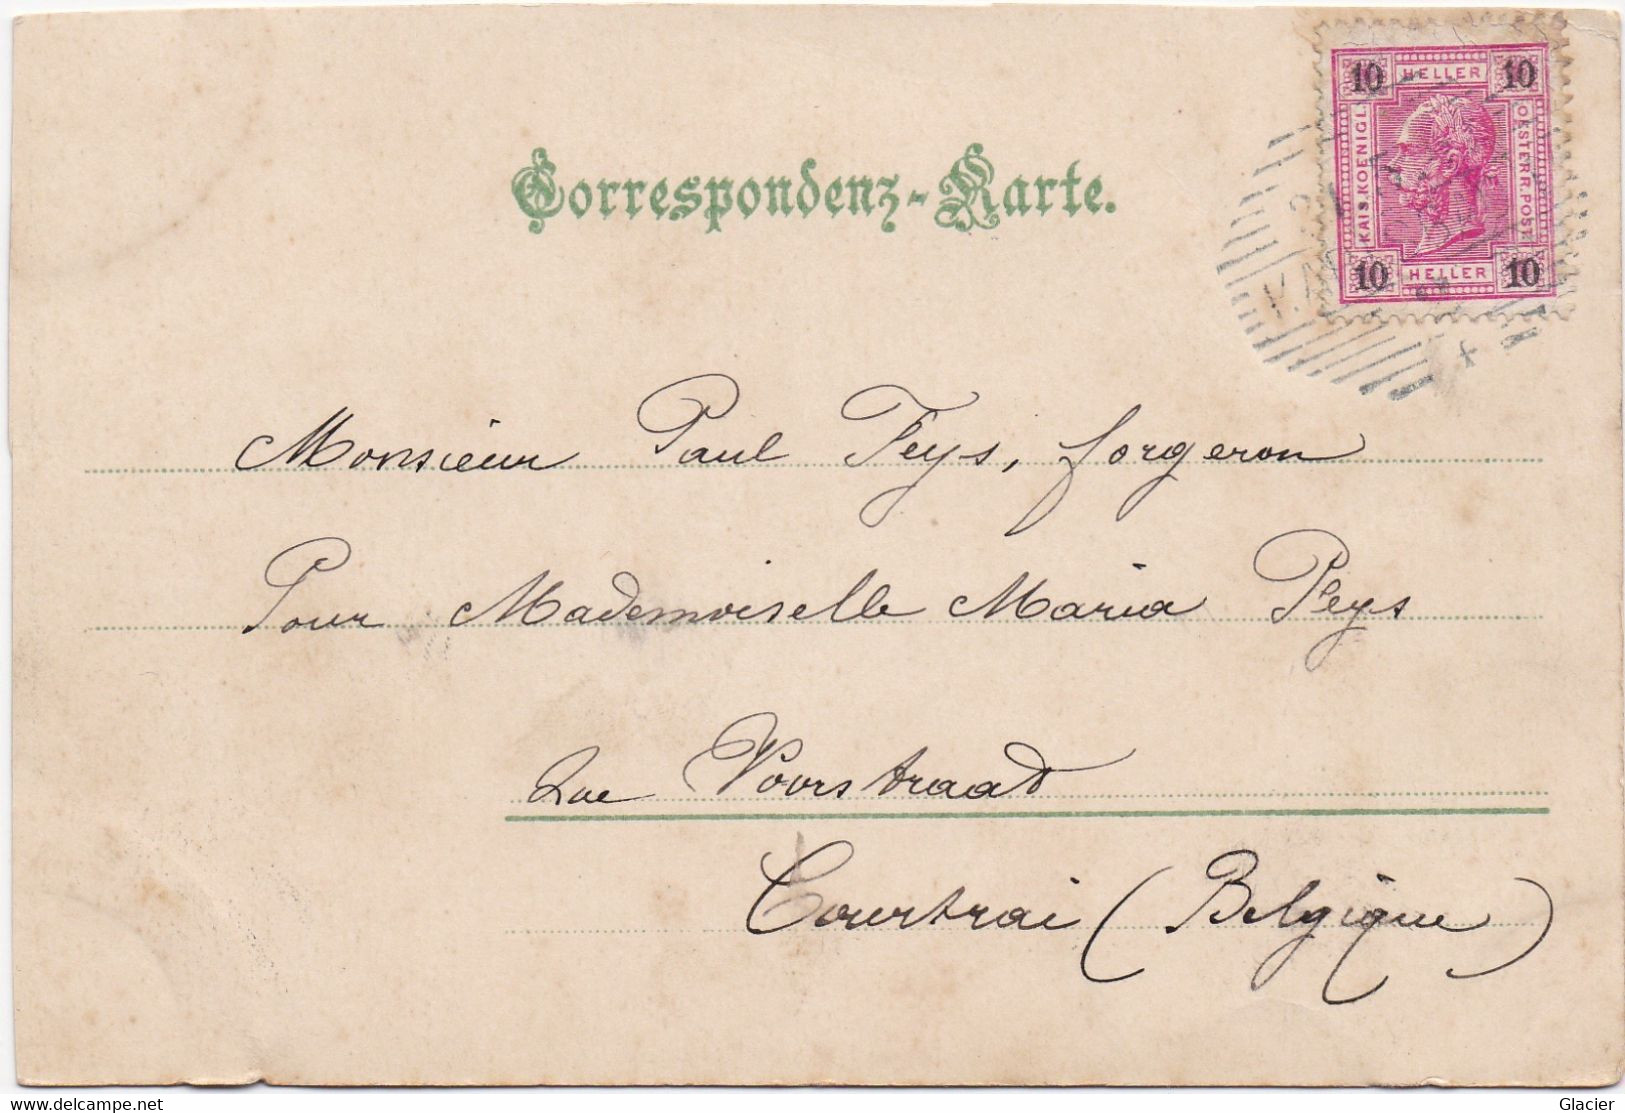 Correspondenz-Karte.
10 HELLER 10
KAIS. KOENIGL. OESTERR. POST.
10 HELLER 10
Monsieur Paul Feys, forgeron
Pour Mademoiselle Maria Feys
Rue Voorstraat
Courtrai (Belgique)
www.delcampe.net
Glacier